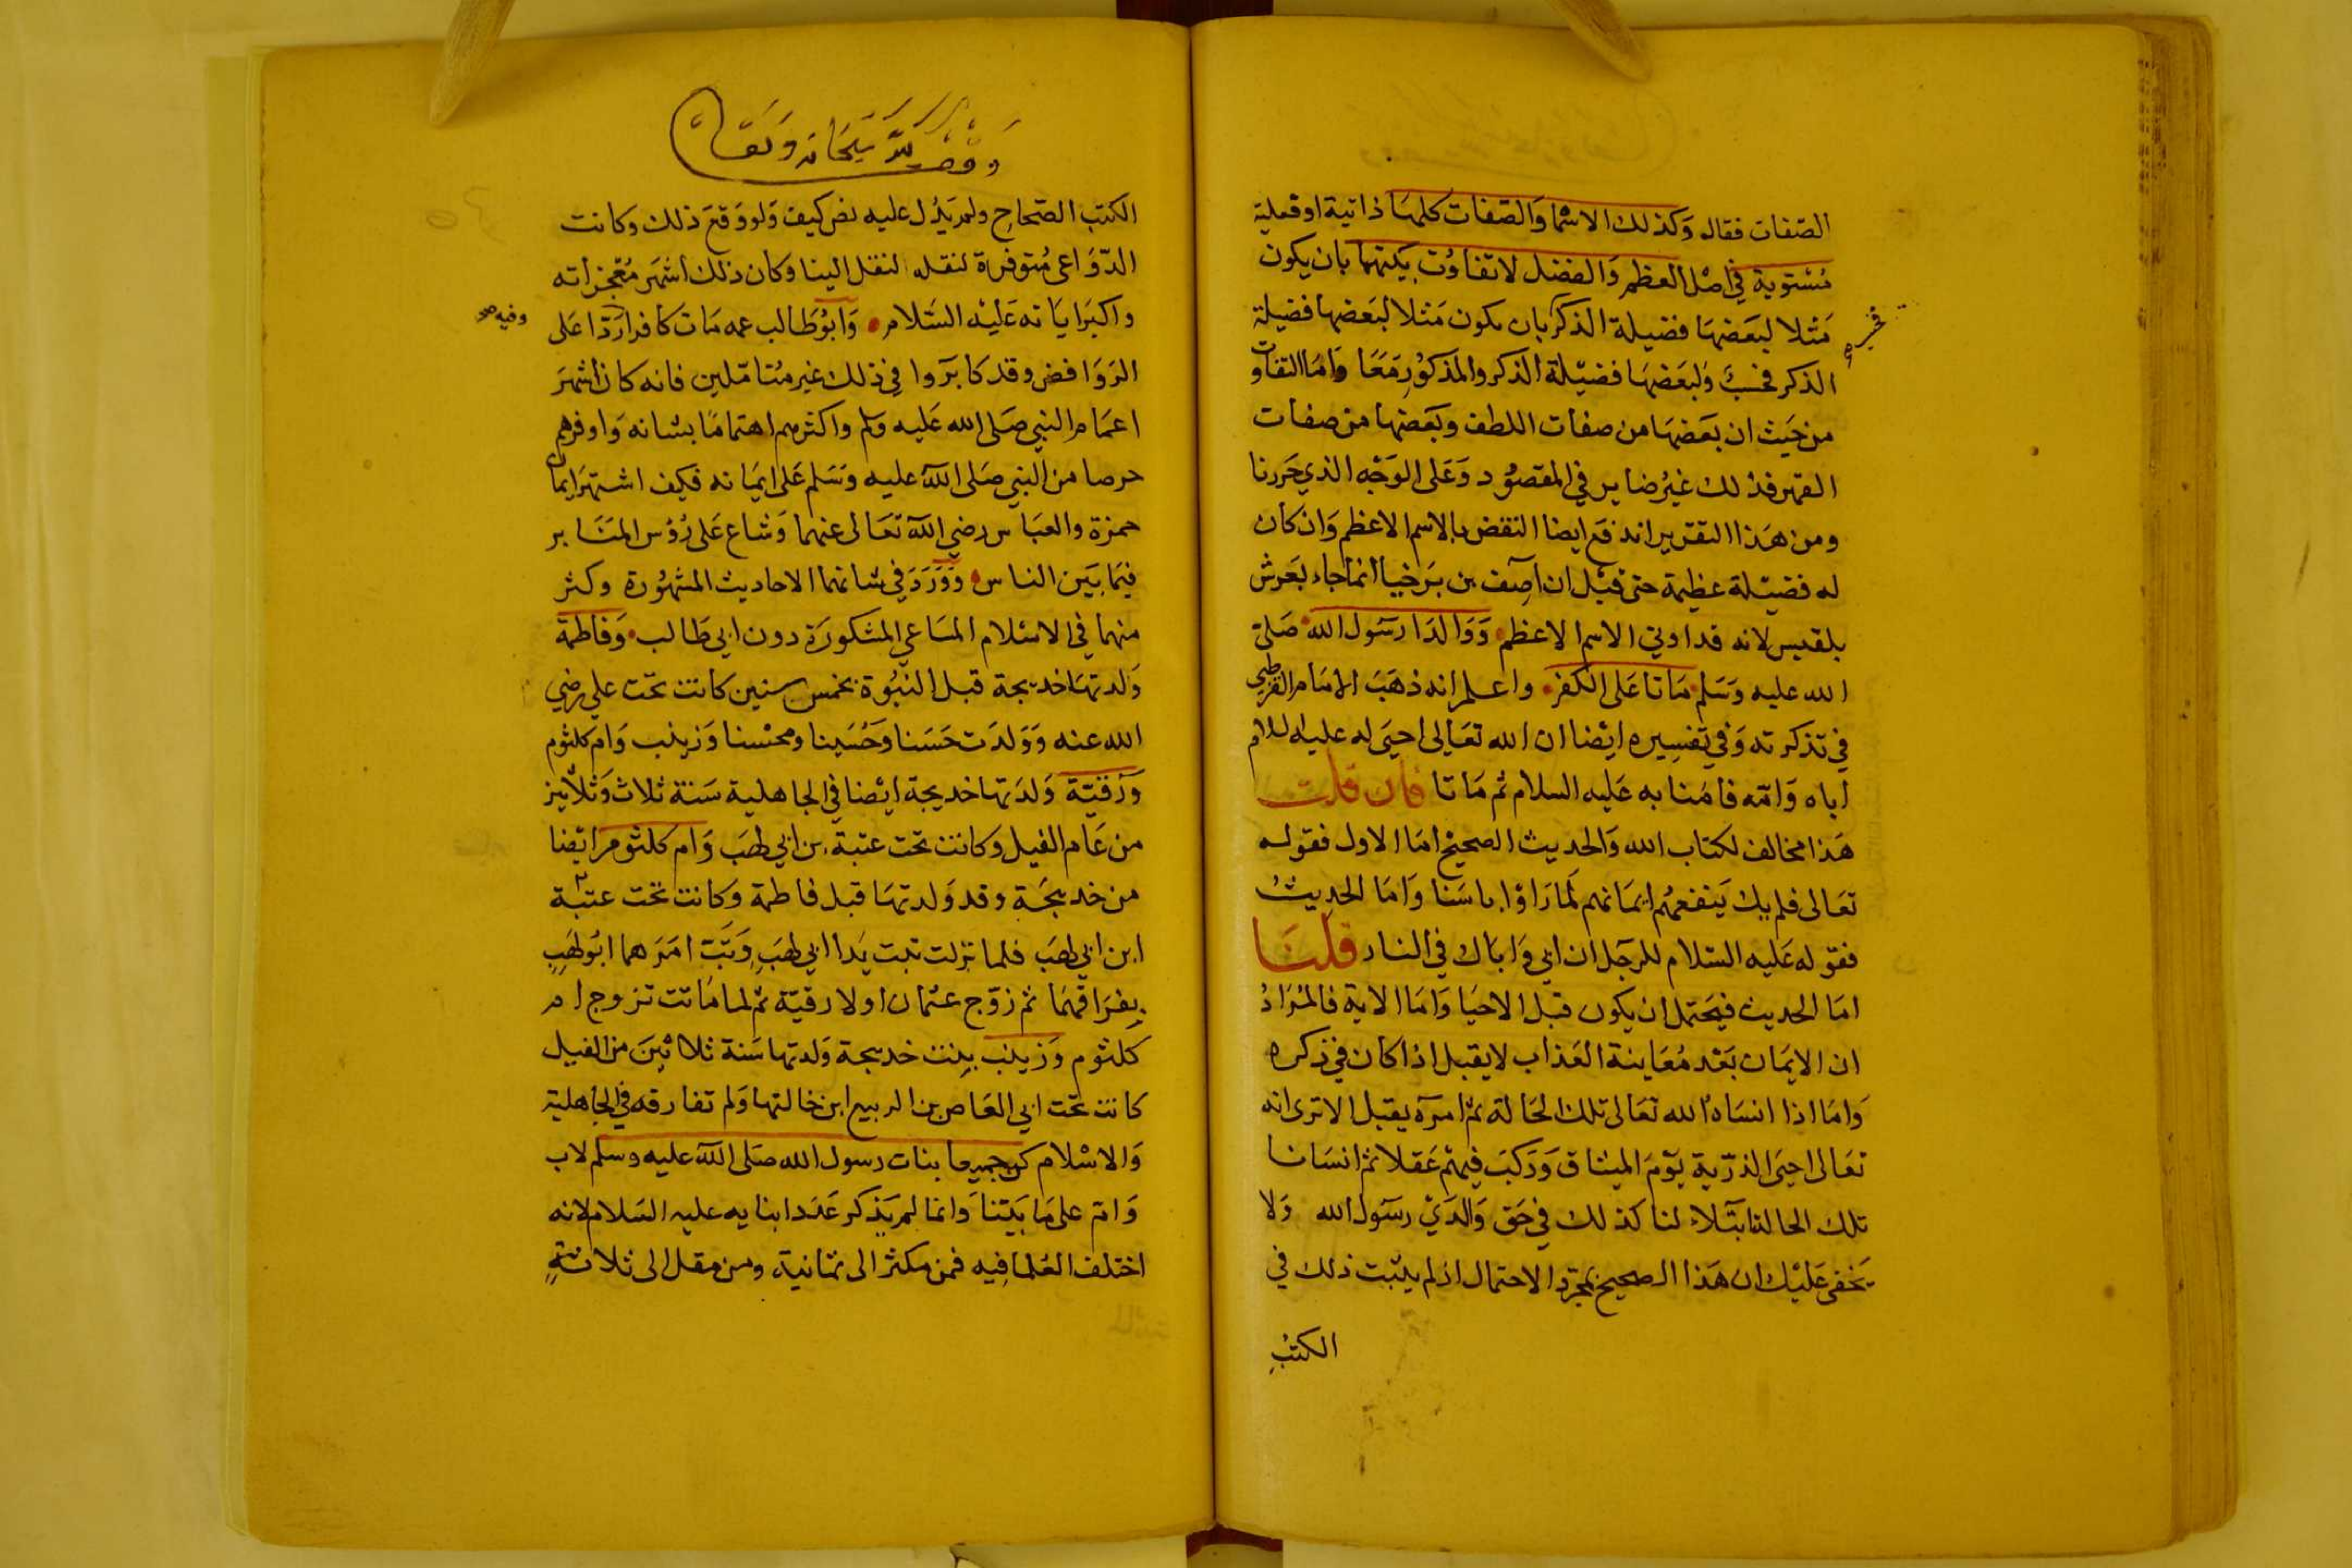 الصفات فقال وكذلك الاسما والصفات كلها ذاتية او فعلية
مستوية في اصل العظم والفضل لا تفاوت بينهما بان يكون
مثلا لبعضها فضيلة الذكر بان يكون مثلا لبعضها فضيلة
الذكر فحسب ولبعضها فضيلة الذكر والمذكور معا واما التفاوت
من حيث ان بعضها من صفات اللطف وبعضها من صفات
القهر فذلك غير ضاير في المقصود وعلى الوجه الذي حررنا
ومن هذا التقرير اندفع ايضا النقض بالاسم الاعظم وان كان
له فضيلة عظيمة حتى قيل ان آصف بن برخيا انما جاء بعرش
بلقيس لانه قد اوتي الاسم الاعظم ووالدا رسول الله صلى
الله عليه وسلم ماتا على الكفر واعلم انه ذهب الامام القرطبي
في تذكرته وفي تفسيره ايضا ان الله تعالى احيى له عليه السلام
اباه وامه فامنا به عليه السلام ثم ماتا فان قلت
هذا مخالف لكتاب الله والحديث الصحيح اما الاول فقوله
تعالى فلم يك ينفعهم ايمانهم لما راوا باسنا واما الحديث
فقوله عليه السلام للرجل ان ابي واباك في النار قلنا
اما الحديث فيحتمل ان يكون قبل الاحيا واما الاية فالمراد
ان الايمان بعد معاينة العذاب لا يقبل اذا كان في ذكره
واما اذا انساه الله تعالى تلك الحالة ثم امره يقبل الا ترى انه
تعالى احيى الذرية يوم الميثاق وركب فيهم عقلا ثم انسانا
تلك الحالة ابتلاء لنا كذلك في حق والدي رسول الله ولا
يخفى عليك ان هذا الصحيح بمجرد الاحتمال اذ لم يثبت ذلك في
الكتب
وقف لله سبحانه وتعالى
الكتب الصحاح ولم يدل عليه نص كيف ولو وقع ذلك وكانت
الدواعي متوفرة لنقله لنقل الينا وكان ذلك اشهر معجزاته
واكبر اياته عليه السلام وابو طالب عمه مات كافرا ردا على
وفيه صح
الروافض وقد كابروا في ذلك غير متاملين فانه كان اشهر
اعمام النبي صلى الله عليه وسلم واكثرهم اهتماما بشانه واوفرهم
حرصا من النبي صلى الله عليه وسلم على ايمانه فكيف اشتهر ايمان
حمزة والعباس رضي الله تعالى عنهما وشاع على رؤس المنابر
فيما بين الناس وورد في شانهما الاحاديث المشهورة وكثر
منهما في الاسلام المساعي المشكورة دون ابي طالب وفاطمة
ولدتها خديجة قبل النبوة بخمس سنين كانت تحت علي رضي
الله عنه وولدت حسنا وحسينا ومحسنا وزينب وام كلثوم
ورقية ولدتها خديجة ايضا في الجاهلية سنة ثلاث وثلاثين
من عام الفيل وكانت تحت عتبة بن ابي لهب وام كلثوم ايضا
من خديجة وقد ولدتها قبل فاطمة وكانت تحت عتبة
ابن ابي لهب فلما نزلت تبت يدا ابي لهب وتب امرهما ابو لهب
بفراقهما ثم زوج عثمان اولا رقية ثم لما ماتت تزوج ام
كلثوم وزينب بنت خديجة ولدتها سنة ثلاثين من الفيل
كانت تحت ابي العاص بن الربيع ابن خالتها ولم تفارقه في الجاهلية
والاسلام كن جميعا بنات رسول الله صلى الله عليه وسلم لاب
وام على ما بينا وانما لم يذكر عدد ابنايه عليه السلام لانه
اختلف العلما فيه فمن مكثر الى ثمانية ومن مقل الى ثلاثة